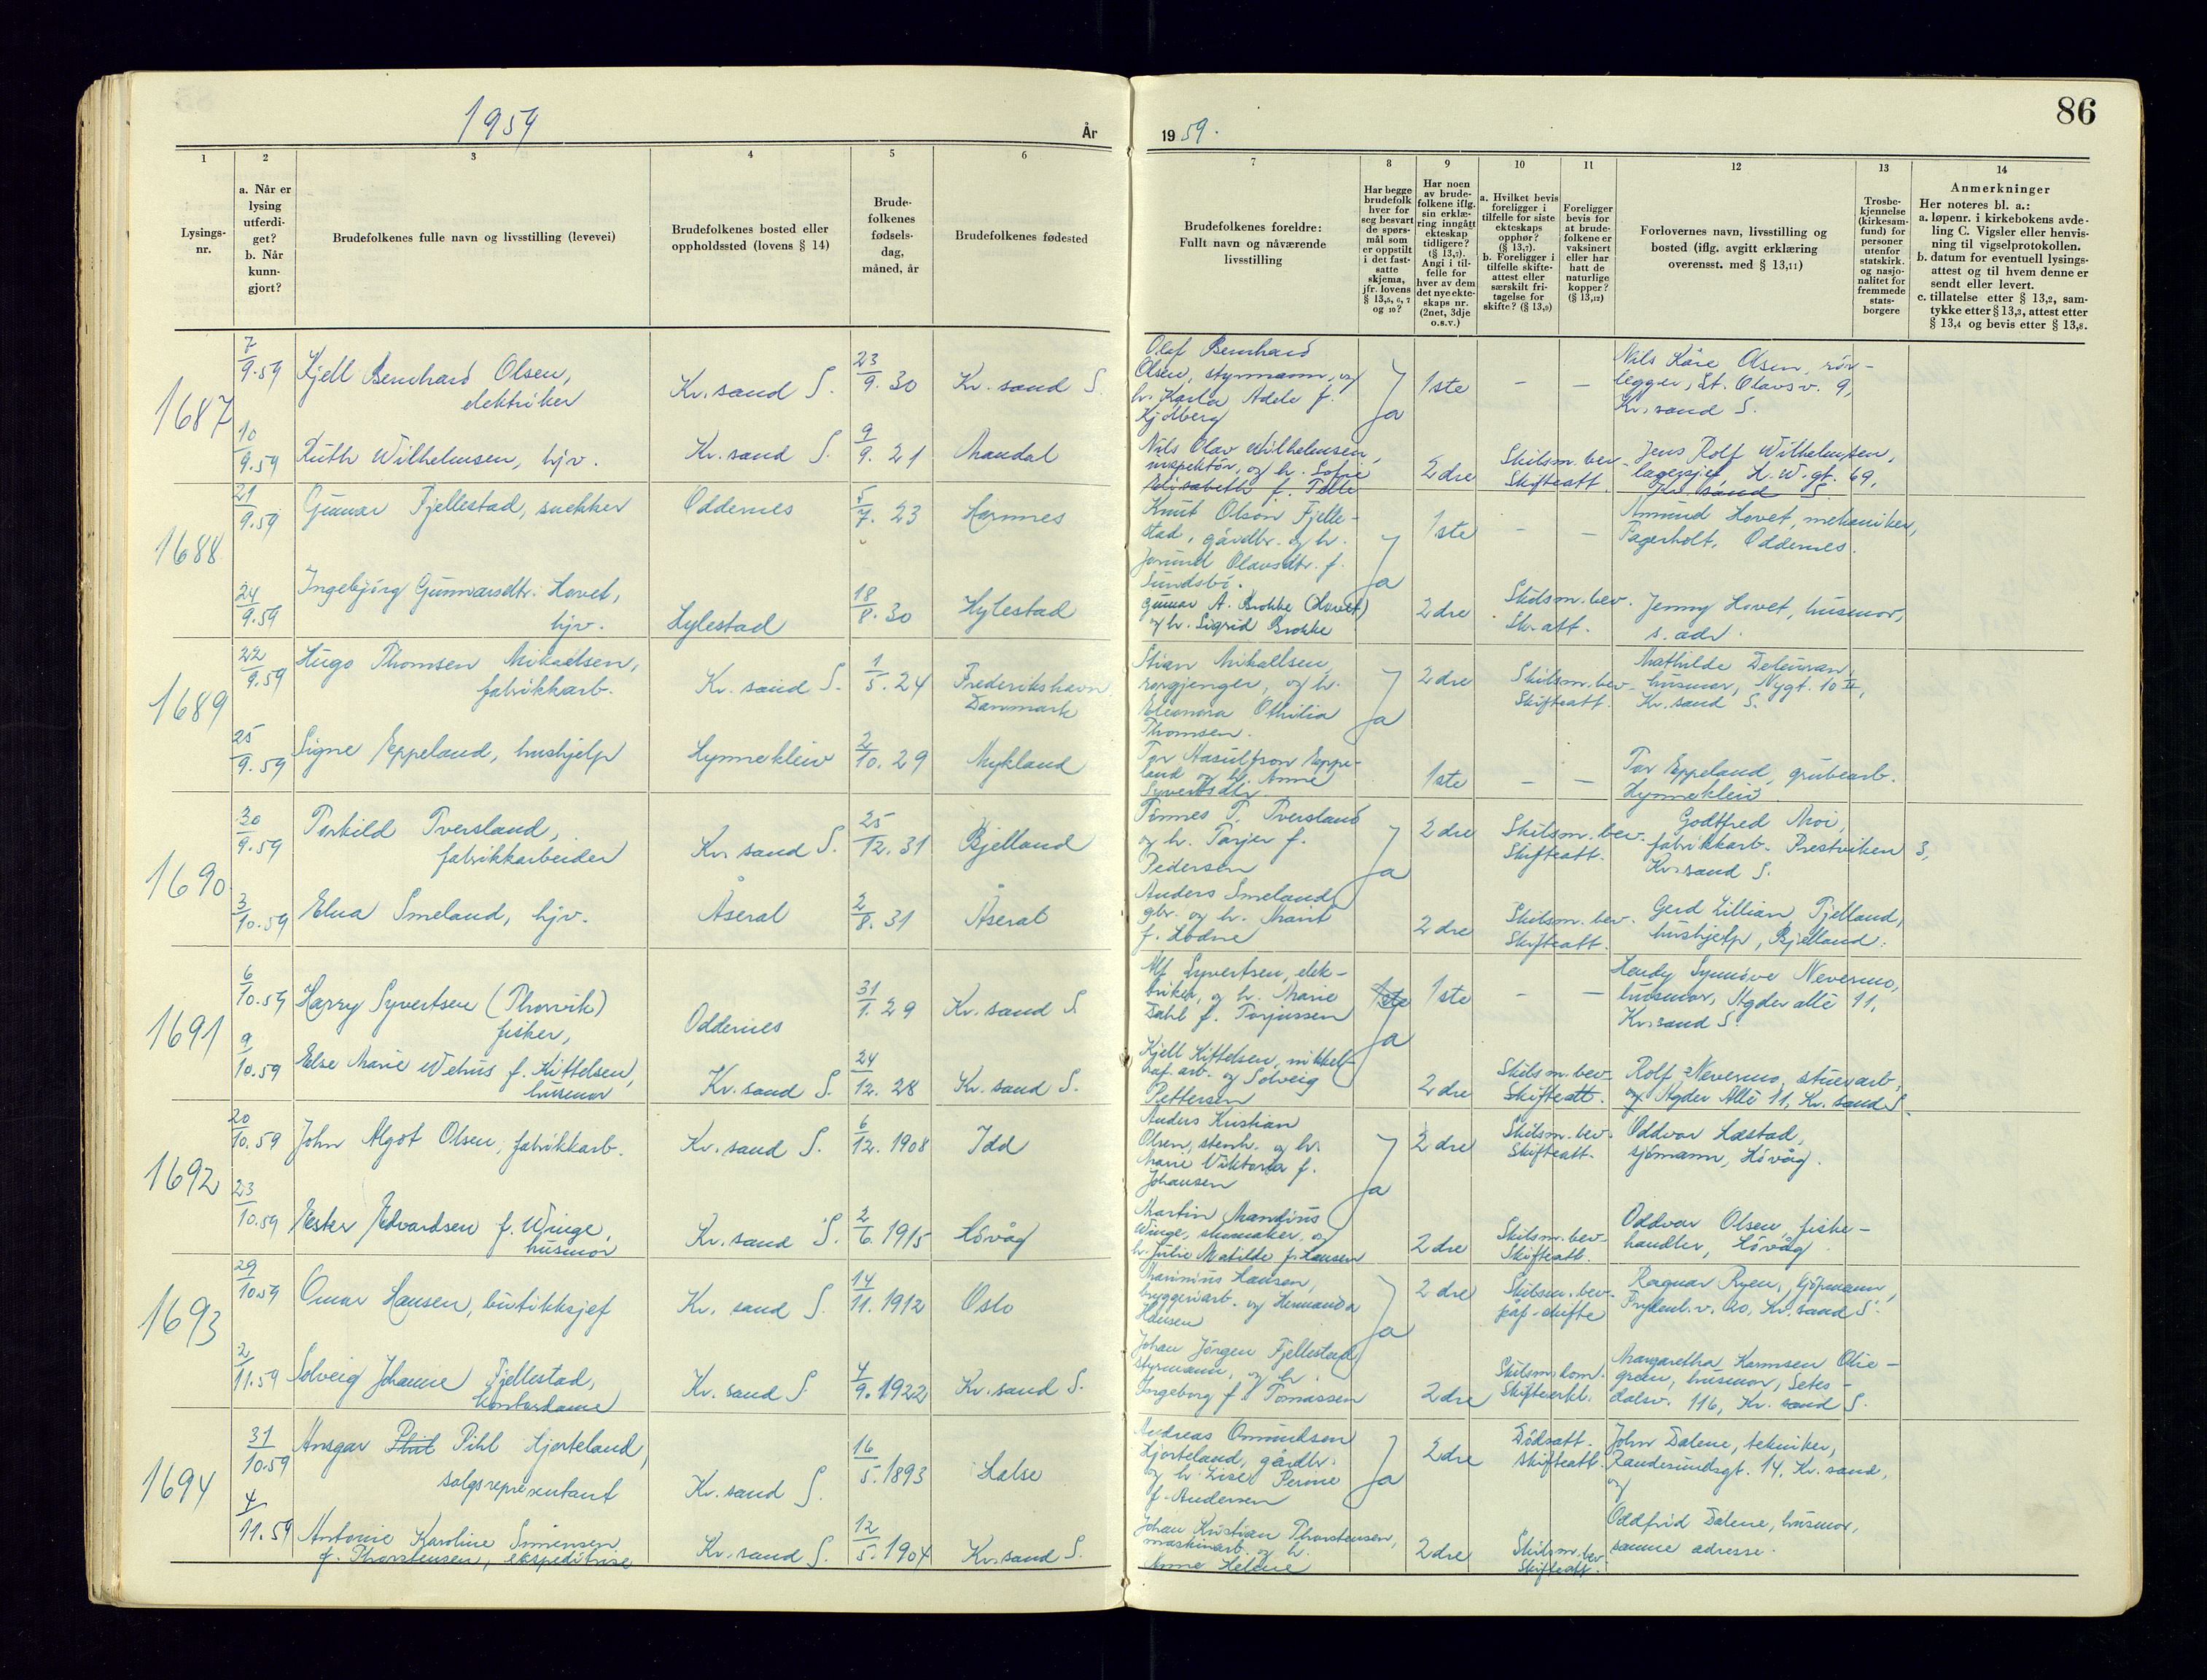 86
1959
År
19 59.
1
2
3
4
5
6
7
8
9
10
11
12
13
14
Lysings-
nr.
a. Når er
lysing
utferdi-
get?
b. Når
kunn-
gjort?
Brudefolkenes fulle navn og livsstilling (levevei)
Brudefolkenes bosted eller
oppholdssted (lovens § 14)
Brude-
folkenes
fødsels-
dag,
måned, år
Brudefolkenes fødested
Brudefolkenes foreldre:
Fullt navn og nåværende
livsstilling
Har begge
brudefolk
hver for
seg besvart
de spørs-
mål som
er oppstilt
i det fast-
satte
skjema,
jfr. lovens
§ 13,5, 6, 7
og 10?
Har noen
av brude-
folkene iflg.
sin erklæ-
ring inngått
ekteskap
tidligere?
(§ 13,7).
Angi i til-
felle for
hver av dem
det nye ekte-
skaps nr.
(2net, 3dje
o.s.v.)
a. Hvilket bevis
foreligger i
tilfelle for siste
ekteskaps
opphør?
(§ 13,7).
b. Foreligger i
tilfelle skifte-
attest eller
særskilt fri-
tagelse for
skifte? (§ 13,9)
Foreligger
bevis for
at brude-
folkene er
vaksinert
eller har
hatt de
naturlige
kopper?
(§ 13,12)
Forlovernes navn, livsstilling og
bosted (iflg. avgitt erklæring
overensst. med § 13,11)
Trosbe-
kjennelse
(kirkesam-
fund) for
personer
utenfor
statskirk.
og nasjo-
nalitet for
fremmede
stats-
borgere
Anmerkninger
Her noteres bl. a.:
a. løpenr. i kirkebokens avde-
ling C. Vigsler eller henvis-
ning til vigselprotokollen.
b. datum for eventuell lysings-
attest og til hvem denne er
sendt eller levert.
c. tillatelse etter § 13,2, sam-
tykke etter § 13,3, attest etter
§ 13,4 og bevis etter § 13,8.
1687
7/9.59
Kjell Bernhard Olsen,
elektriker
Kr.sand S.
23/9. 30
Kr. sand S.
Olaf Bernhard
Olsen, styrmann, og
h. Karla Adele f.
Kjölberg
Ja
1ste
–
–
Nils Kåre Olsen, rör-
legger, St. Olavsv. 9,
Kr.sand S.
10/9.59
Ruth Wilhelmsen, hjv.
Kr.sand S.
9/9. 21
Mandal
Nils Olav Wilhelmsen,
inspektör, og h. Sofie
Elisabeth f. Telle
2dre
Skilsm.bev.
Skifteatt.
Jens Rolf Wilhelmsen,
lagersjef, H.W.gt. 69,
Kr.sand S.
1688
21/9.59
Gunnar Fjellestad, snekker
Oddernes
5/7. 23
Hornnes
Knut Olson Fjelle-
stad, gårdbr. og h.
Jorund Olavsdtr. f.
Sundsbö.
Ja
1ste
–
–
Amund Hovet, mekaniker,
Fagerholt, Oddernes.
24/9.59
Ingebjörg Gunnarsdtr. Hovet,
hjv.
Hylestad
18/8.30
Hylestad
Gunnar A. Brokke (Hovet)
og h. Sigrid Brokke
2dre
Skilsm.bev.
Sk.att.
Jenny Hovet, husmor,
s. adr.
1689
22/9.59
Hugo Thomsen Mikaelsen,
fabrikkarb.
Kr. sand S.
1/5. 24
Frederikshavn
Danmark
Stian Mikallsen,
rorgjenger, og h.
Eleonora Othilia
Thomsen.
Ja
2dre
Skilsm.bev.
Skifteatt.
Mathilde Deleuran,
husmor, Nygt. 10 II,
Kr.sand S.
25/9.59
Signe Eppeland, hushjelp
Hynnekleiv
2/10. 29
Mykland
Tor Aasulfson Eppe-
land og h. Anne
Syvertsdtr.
1ste
–
–
Tor Eppeland, grubearb.
Hynnekleiv
1690
30/9.59
Torkild Tversland,
fabrikkarbeider
Kr. sand S.
25/12. 31
Bjelland
Tönnes T. Tversland
og h. Torjer f.
Pedersen
Ja
2dre
Skilsm.bev.
Skifteatt.
Godtfred Moi,
fabrikkarb. Prestviken 3,
Kr.sand S.
3/10.59
Elna Smeland, hjv.
Åseral
2/8. 31
Åseral
Anders Smeland,
gbr. og h. Marit
f. Lodne
2dre
Skilsm.bev.
Skifteatt.
Gerd Lillian Fjelland,
hushjelp, Bjelland.
1691
6/10.59
Harry Syvertsen (Thorvik)
fisker,
Oddernes
31/1. 29
Kr. sand S.
Alf Syvertsen, elek-
triker, og h. Marie
Dahl f. Torjussen
1ste
Ja
1ste
–
–
Hendy Synnöve Nevermo,
husmor, Agder allé 11,
Kr.sand S.
9/10.59
Else Marie Wehus f. Kittelsen,
husmor
Kr. sand S.
24/12. 28
Kr. sand S.
Kjell Kittelsen, nikkel-
raf. arb. og Solveig
Pettersen
2dre
Skilsm.bev.
Skifteatt.
Rolf Nevermo, stuerarb.
og Agder Allé 11, Kr. sand S.
1692
20/10.59
John Algot Olsen, fabrikkarb.
Kr. sand S.
6/12. 1908
Idd
Anders Kristian
Olsen, stenh. og h.
Marie Viktoria f.
Johansen
Ja
2dre
Skilsm.bev.
Skifteatt.
Oddvar Hæstad,
sjömann, Hövåg.
23/10.59
Ester Edvardsen f. Winge,
husmor
Kr. sand S.
2/6. 1915
Hövåg
Martin Mandius
Winge, skomaker, og
h. Julie Matilde f. Hansen
2dre
Skilsm.bev.
Skifteatt.
Oddvar Olsen, fiske-
handler, Hövåg.
1693
29/10.59
Omar Hansen, butikksjef
Kr. sand S.
14/11. 1912
Oslo
Marinius Hansen,
bryggeriarb. og Hermanda
Hansen
Ja
2dre
Skilsm.bev.
på skifte
Ragnar Ryen, sjömann,
20, Kr. sand S.
2/11.59
Solveig Johanne Fjellestad,
kontordame
Kr. sand S.
4/9. 1922
Kr. sand S.
Johan Jörgen Fjellestad,
styrmann, og h.
Ingeborg f. Tomassen
2dre
Skilsm.dom.
Skifteerkl.
Margaretha Karmsen Olie-
green, husmor, Setes-
dalsv. 116, Kr. sand S.
1694
31/10.59
Ansgar Phil Pihl Hjorteland,
salgsrepresentant
Kr. sand S.
16/5. 1893
Halse
Andreas Omundsen
Hjorteland, gårdbr.
og h. Lise Perine
f. Andersen
Ja
2dre
Dödsatt.
Skifteatt.
John Dalene, tekniker,
Randesundsgt. 14, Kr. sand,
og
4/11.59
Antonie Karoline Simensen
f. Thorstensen, ekspeditrise
Kr. sand S.
12/5. 1904
Kr. sand S.
Johan Kristian Thorstensen,
maskinarb. og h.
Anna Helene
2dre
Skilsm.bev.
Skifteatt.
Oddfrid Dalene, husmor,
samme adresse.